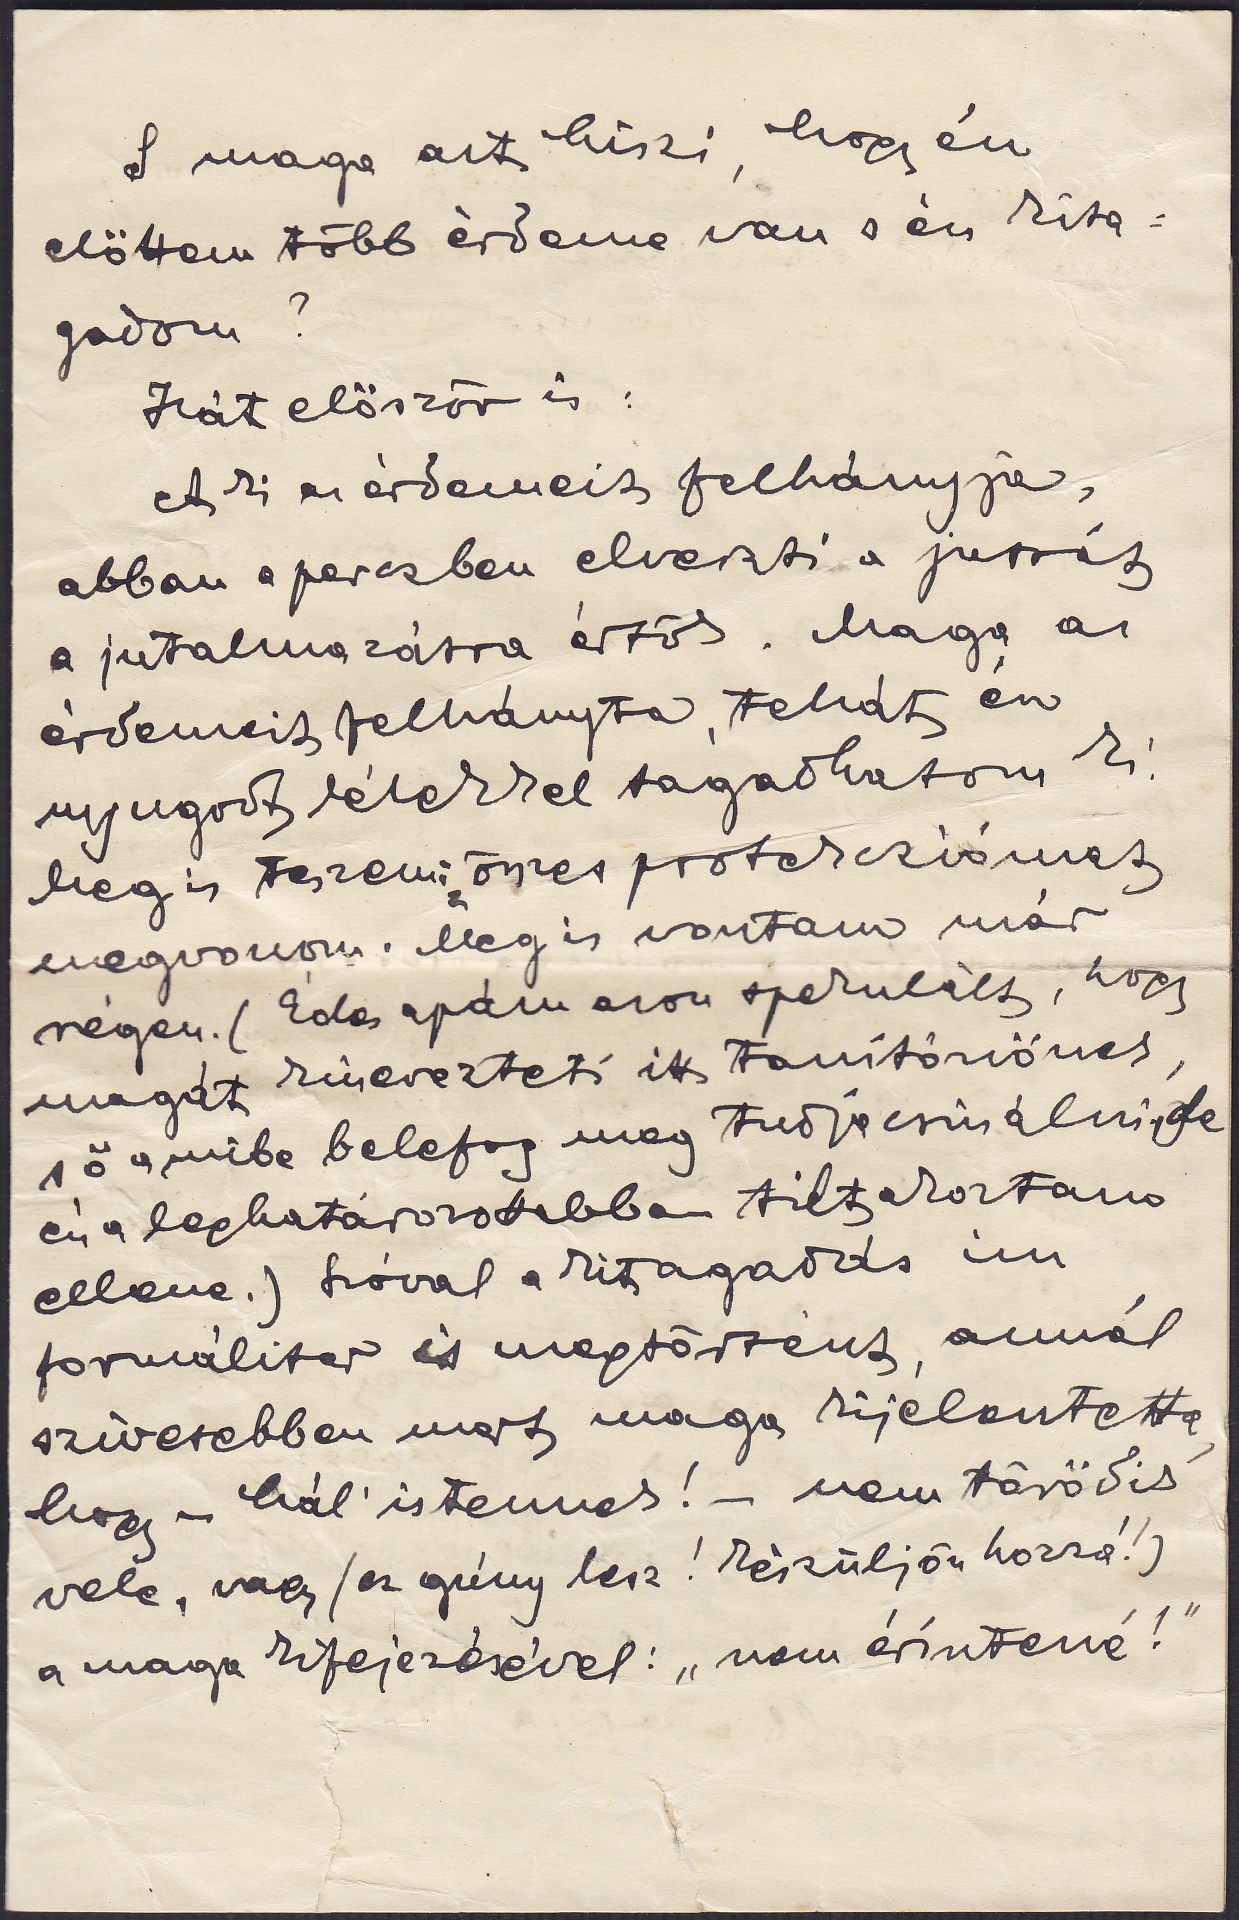 S maga azt hiszi, hogy én
előttem több érdeme van s én kita=
gadom?
Hát először is:
A ki az érdemeit felhányja,
abban a perczben elveszti a jussát
a jutalmazásra értök. Maga az
érdemeit felhányta, tehát én
nyugodt lélekkel tagadhatom ki.
Meg is teszem; összes protekcziómat
megvonom. Meg is vontam már
régen. (Édes apám azon spekulált, hogy
magát kinevezteti itt tanítónőnek,
s ő a mibe belefog meg tudja csinálni, de
én a leghatározottabban tiltakoztam
ellene.) Szóval a kitagadás im
formáliter is megtörtént, annál
szívesebben mert maga kijelentette,
hogy – hál' istennek! – nem törődik
vele, vagy (ez gúny lesz! Készüljön hozzá!)
a maga kifejezésével: „nem érintené!"